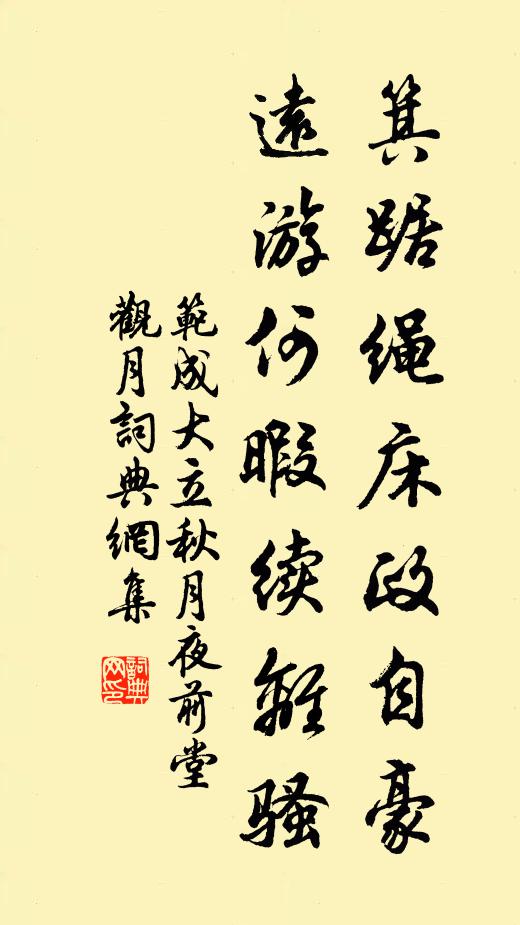 箕踞绳床政自豪
遠游何暇续離骚
範成大立秋月夜前堂
觀月詞典網集
詞典网印